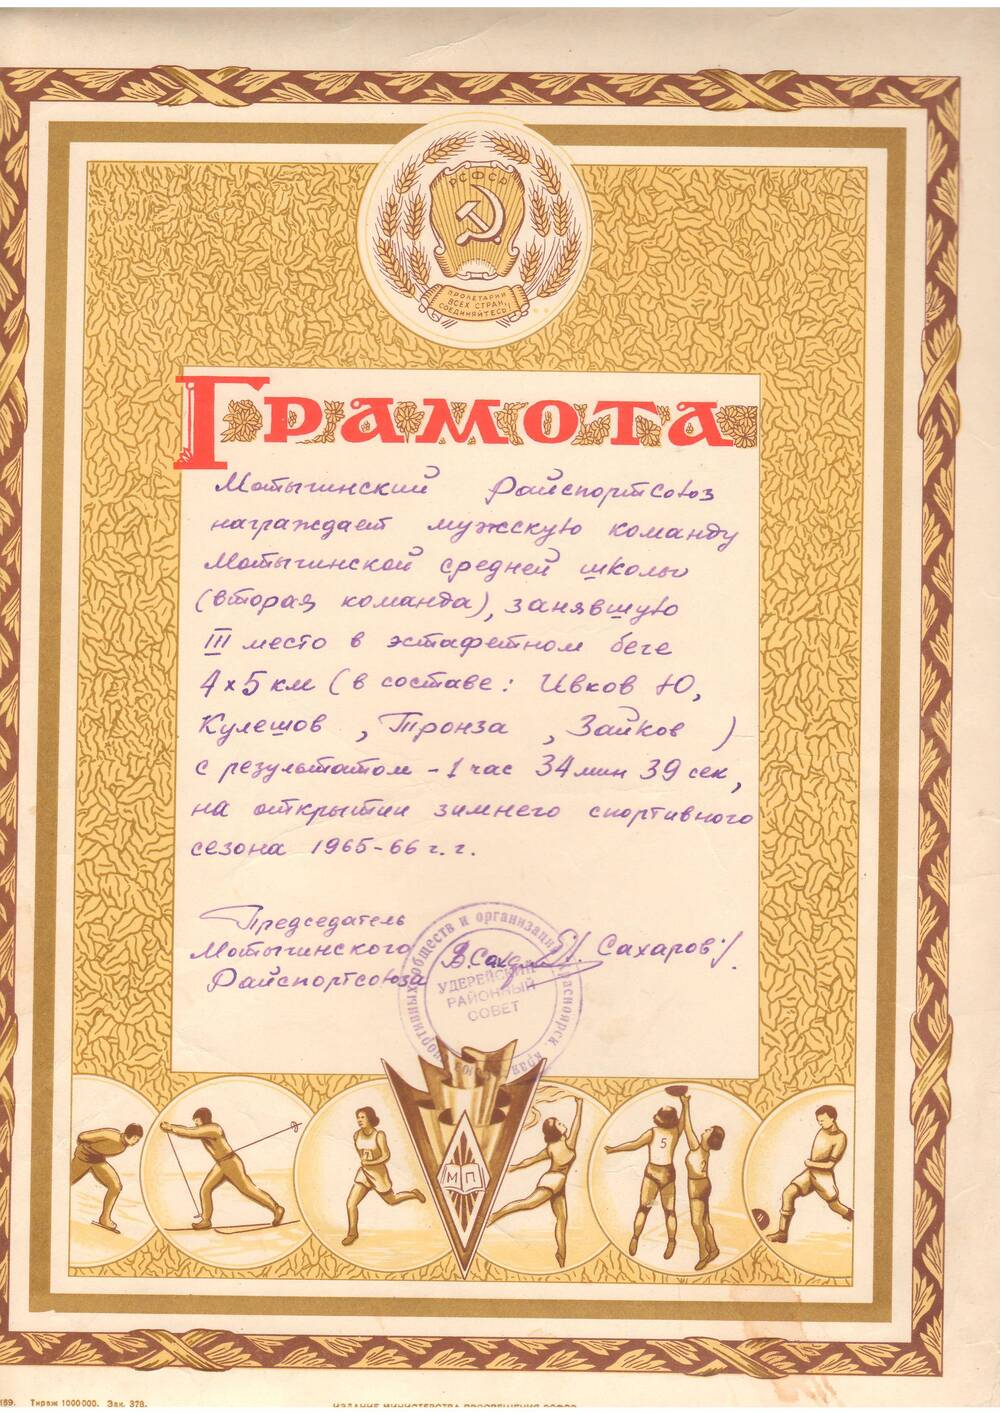 РСФСР
ПРОЛЕТАРИИ
ВСЕХ СТРАН,
СОЕДИНЯЙТЕСЬ!
ГРАМОТА
Мотыгинский Райспортсоюз
награждает мужскую команду
Мотыгинской средней школы
(вторая команда), занявшую
III место в эстафетном беге
4х5 км (в составе: Ивков Ю,
Кулешов , Тронза , Зайков )
с результатом - 1 час 34 мин 39 сек,
на открытии зимнего спортивного
сезона 1965-66 г. г.
Председатель
Мотыгинского
Райспортсоюза
/. Сахаров /.
обществ и организаций
Красноярск края
УДЕРЕЙСКИЙ
РАЙОННЫЙ
СОВЕТ
МП
5
Тираж 1000000. Зак. 378.
ИЗДАНИЕ МИНИСТЕРСТВА ПРОСВЕЩЕНИЯ РСФСР